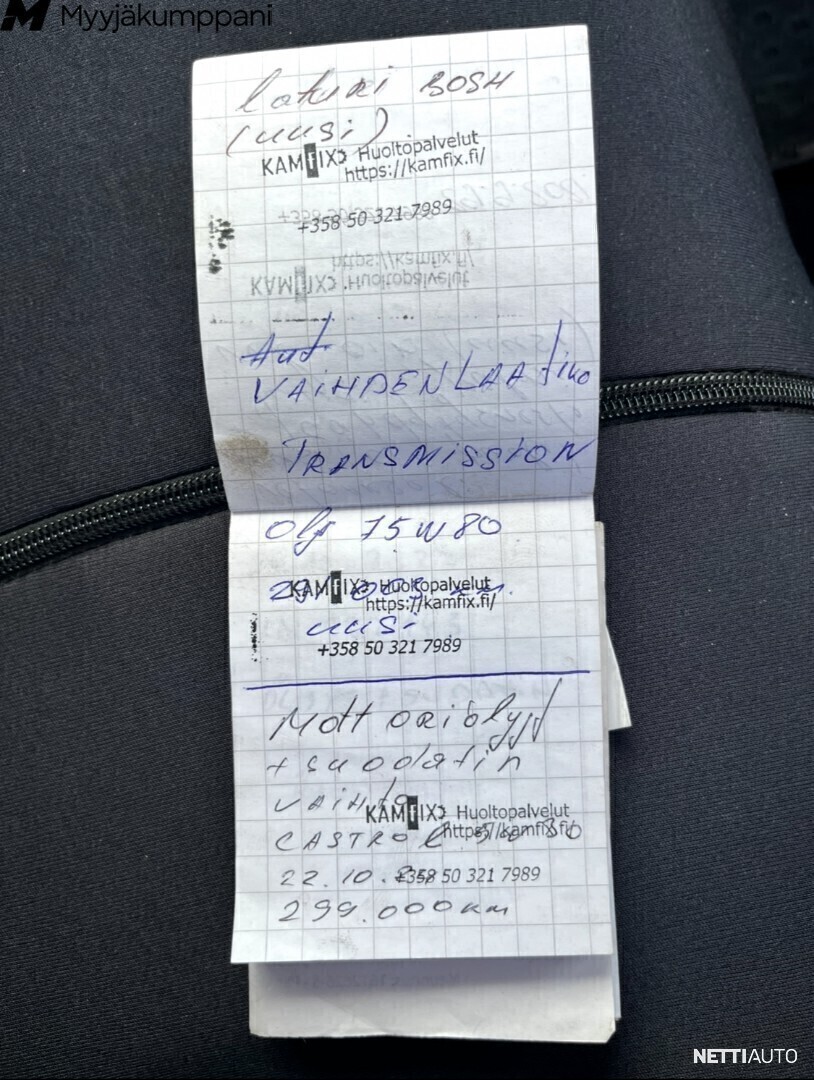 Myyjäkumppani
laturi BOSH
(uusi)
KAMfIX Huoltopalvelut
https://kamfix.fi/
+358 50 321 7989
https://kamfix.fi/
KAMfIX Huoltopalvelut
Aut
VAIHDENLAAtiKO
TRANSMISSION
75W80
KAMfIX Huoltopalvelut
https://kamfix.fi/
uusi
+358 50 321 7989
+ suodatin
vaihto
KAMfIX Huoltopalvelut
CASTROL https://kamfix.fi/
22.10. +358 50 321 7989
299.000 km
NETTIAUTO